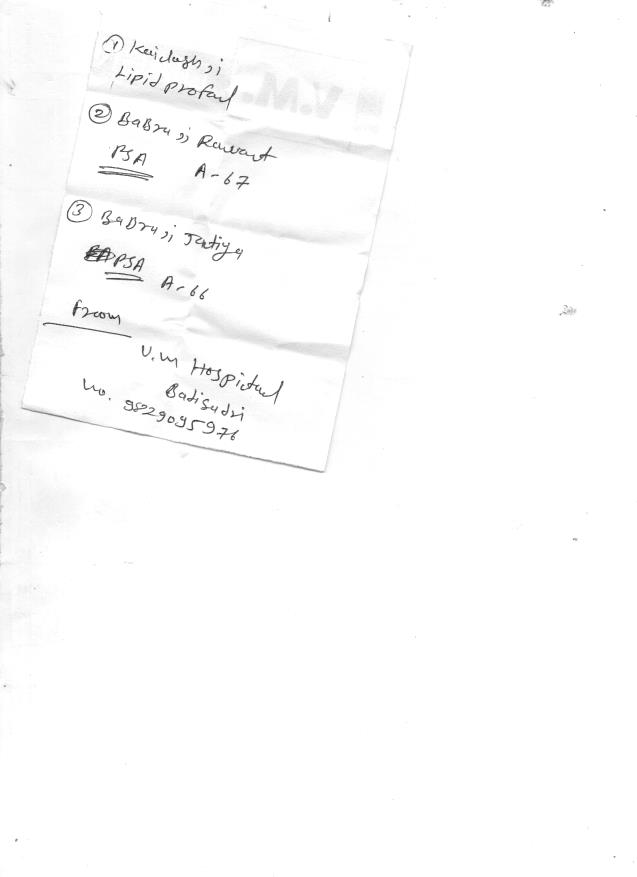 ① Kailash ji
Lipid profail
② BaBru ji Rawat
PSA A-67
③ BaBru ji Jatiya
PSA A-66
From
V.M Hospital
Badisadri
No. 9829095976
V.M.